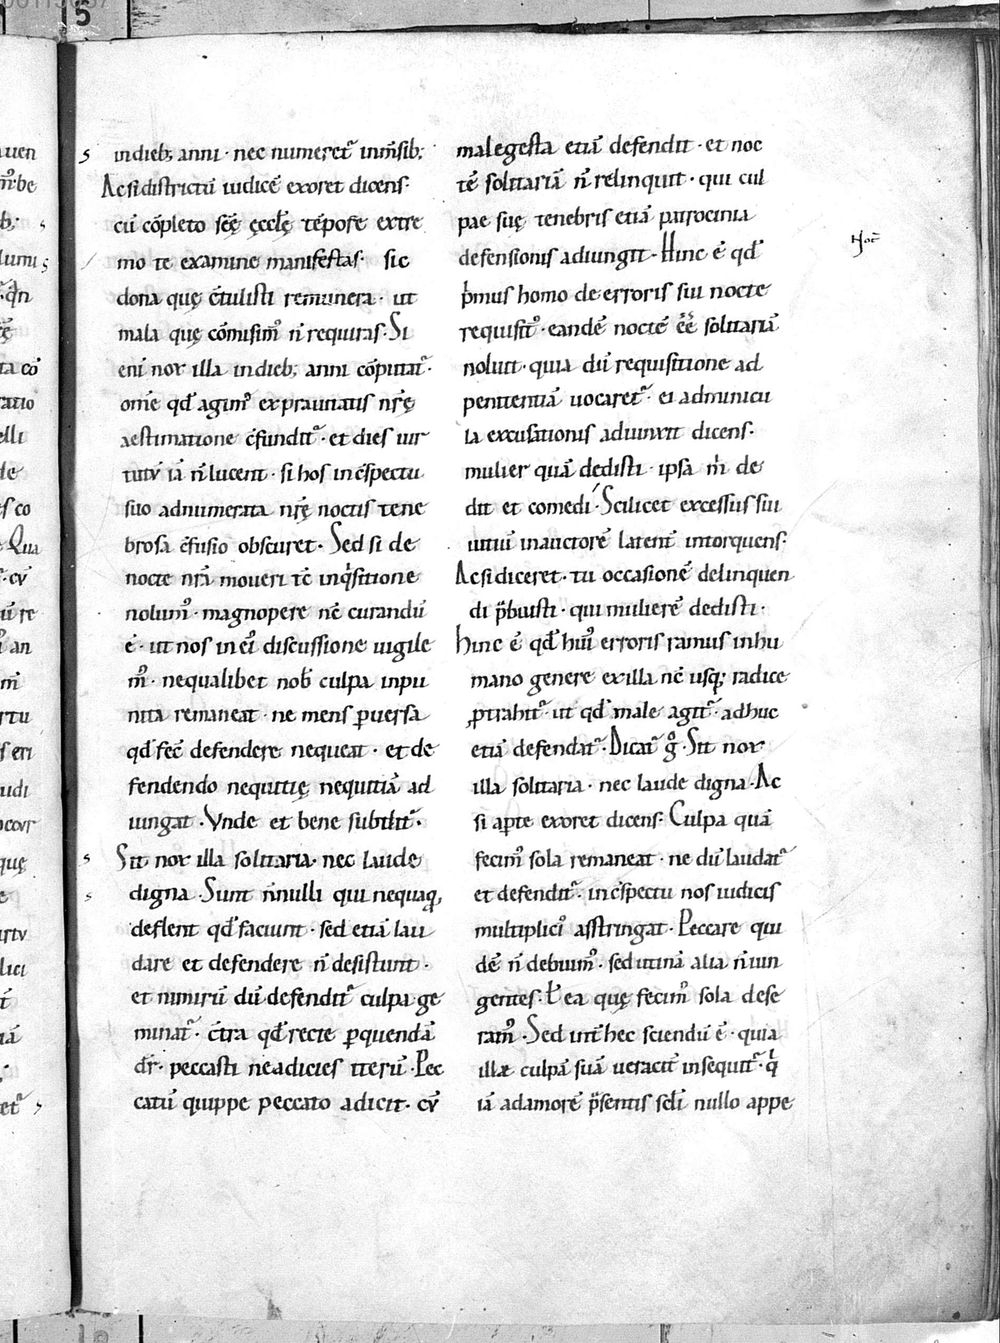 in dieb; anni · nec numeret᷑ in m̄sib;
Ac si districtū iudicē exoret dicens·
cū cōpleto sc̄ę ęccl̄ę tēpore extre
mo te examine manifestas· sic
dona quę c̄tulisti remunera · ut
mala quę cōmisim᷒ n̄ requiras· Si
eni nox illa in dieb; anni cōputat᷑·
om̄e qd̄ agim᷒ ex prauitatis nr̄ę
aestimatione c̄fundit᷑· et dies uir
tutū iā n̄ lucent · si hos in c̄spectu
suo adnumerata nr̄ę noctis tene
brosa c̄fusio obscuret· Sed si de
nocte nr̄a moueri tc̄ inq̇sitione
nolum᷒· magnopere nc̄ curandū
ē· ut nos in ei᷒ discussione uigile
m᷒· ne qualibet nob̄ culpa inpu
nita remaneat · ne mens ꝑuersa
qd̄ fec̄ defendere nequeat · et de
fendendo nequitię nequitiā ad
iungat· Vnde et bene subdit᷑·
Sit nox illa solitaria· nec laude
digna· Sunt n̄nulli qui nequaq̨
deflent qd̄ faciunt · sed etiā lau
dare et defendere n̄ desistunt ·
et nimirū dū defendit᷑ culpa ge
minat᷑· c̄tra qd̄ recte ꝑ quendā
dr̄· peccasti ne adicies iterū· Pec
catū quippe peccato adicit· cū
male gesta etiā defendit · et noc
tē solitariā n̄ relinquit · qui cul
pae suę tenebris etiā patrocinia
defensionis adiungit · Hinc ē qd̄
p̄mus homo de erroris sui nocte
requisit᷒ · eandē noctē ēē solitariā
noluit · quia dū requisitione ad
penitentiā uocaret᷑· ei adminicu
la excusationis adiunxit dicens·
mulier quā dedisti · ipsa m̄ de
dit et comedi· Scilicet excessus sui
uitiū in auctorē latent᷑ intorquens·
Ac si diceret · tu occasionē delinquen
di p̄buisti · qui mulierē dedisti ·
Hinc ē qd̄ hui᷒ erroris ramus in hu
mano genere ex illa nc̄ usq; radice
ꝓtrahit᷑· ut qd̄ male agit᷑· adhuc
etiā defendat᷑· Dicat᷑ gͦ· Sit nox
illa solitaria · nec laude digna · Ac
si apte exoret dicens· Culpa quā
fecim᷒ sola remaneat · ne dū laudat᷑
et defendit᷑· in c̄spectu nos iudicis
multiplici᷒ asstringat · Peccare qui
dē n̄ debuim᷒· sed utinā alia n̄ iun
gentes· ł ea quę fecim᷒ sola dese
ram᷒· Sed int̄ hec sciendū ē· quia
ille culpā suā ueracit᷑ insequit᷑· q̇
iā ad amorē p̄sentis sc̄li nullo appe